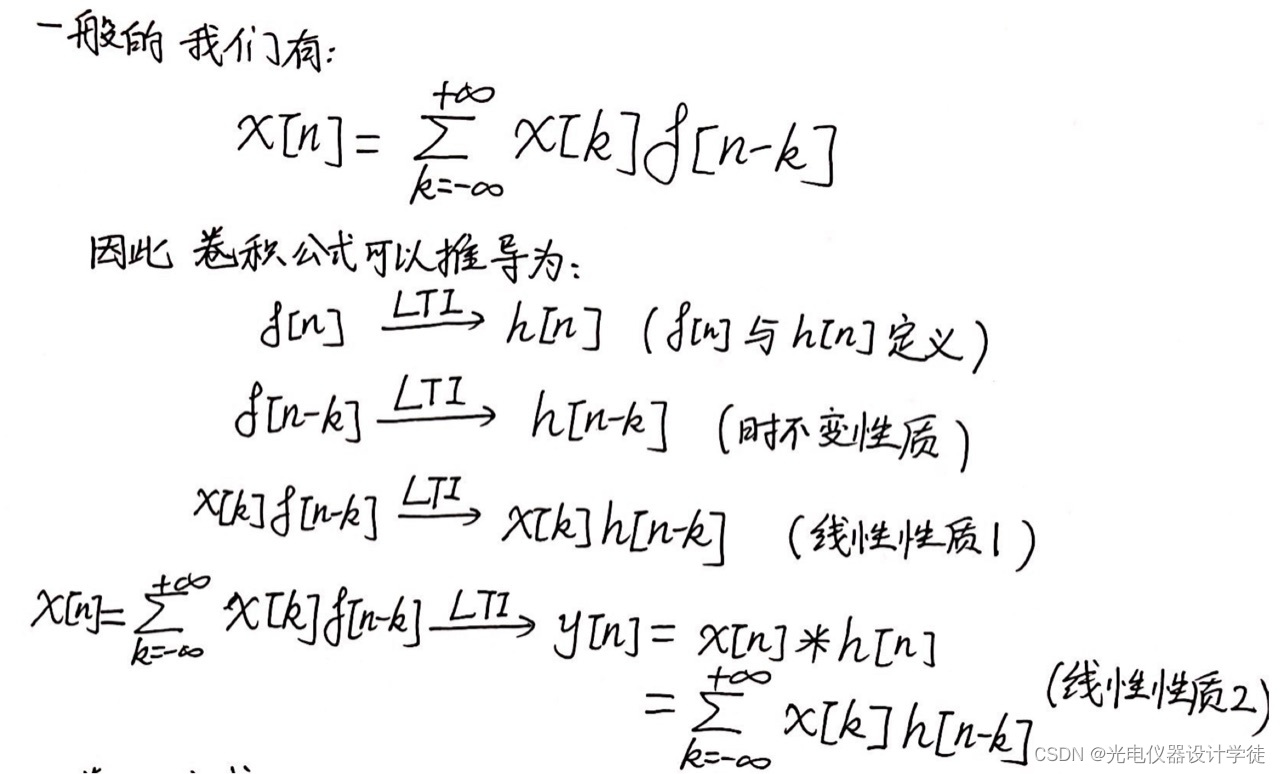 一般的 我们有:
x[n] = \sum_{k=-∞}^{+∞} x[k]δ[n-k]
因此 卷积公式可以推导为:
δ[n] \xrightarrow{LTI} h[n] (δ[n]与h[n]定义)
δ[n-k] \xrightarrow{LTI} h[n-k] (时不变性质)
x[k]δ[n-k] \xrightarrow{LTI} x[k]h[n-k] (线性性质1)
x[n] = \sum_{k=-∞}^{+∞} x[k]δ[n-k] \xrightarrow{LTI} y[n] = x[n]*h[n]
= \sum_{k=-∞}^{+∞} x[k]h[n-k] (线性性质2)
CSDN @光电仪器设计学徒